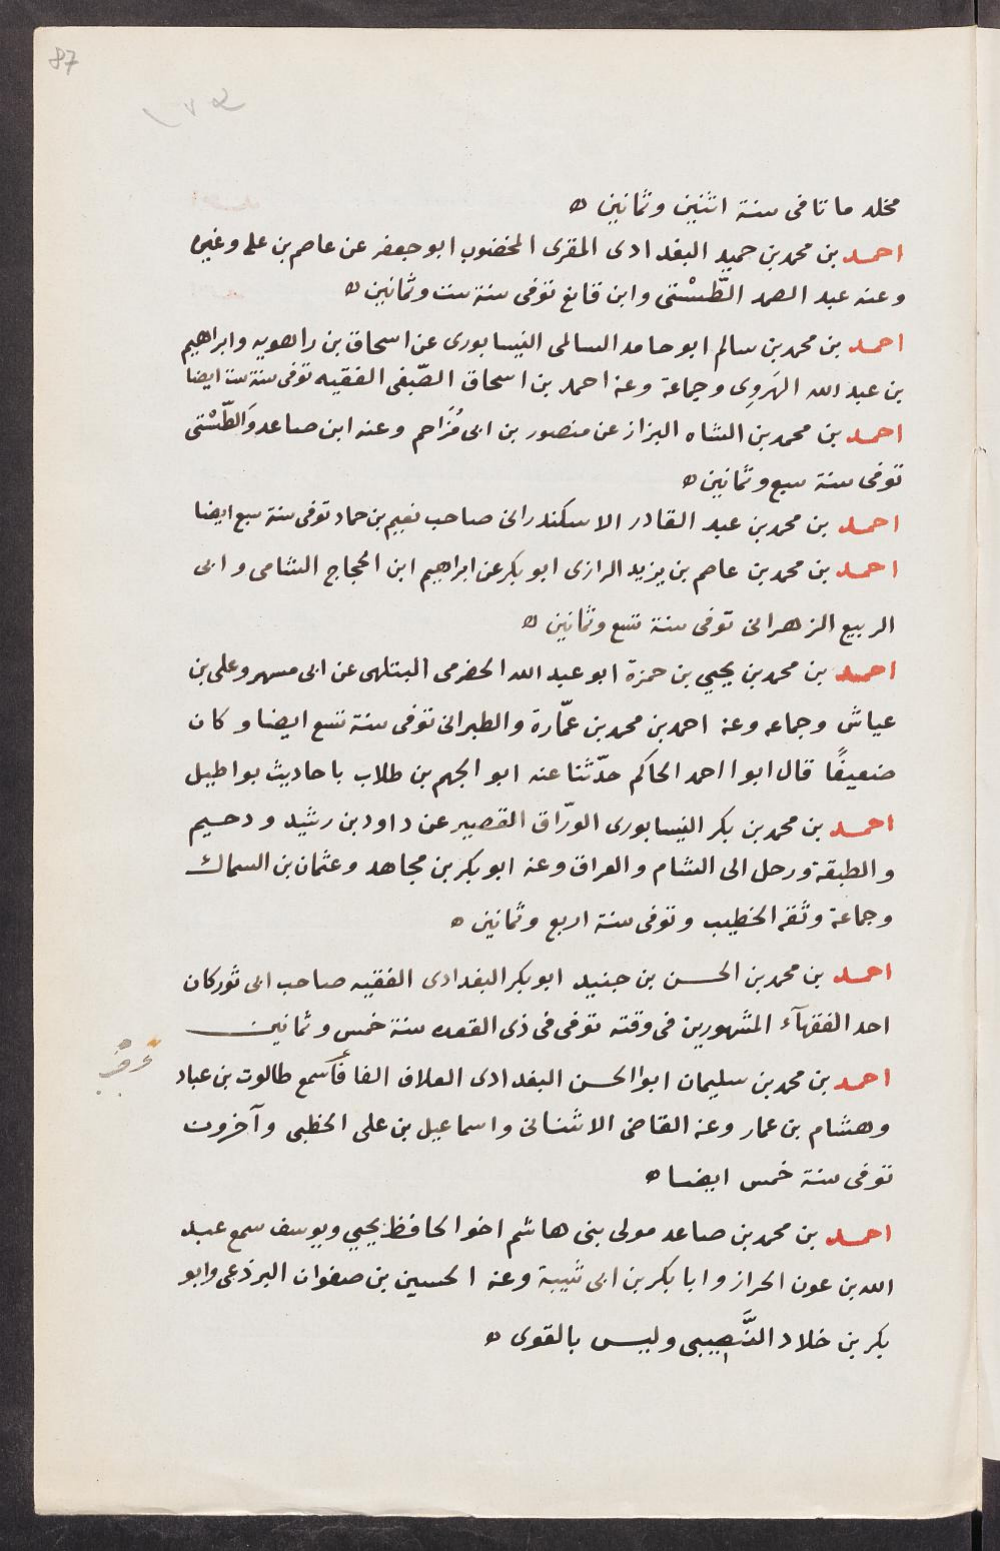 87
مخلد ماتا فى سنة اثنين وثمانين ه
احمد بن محمد بن حميد البغدادى المقرى المخضوب ابو جعفر عن عاصم بن على وغيره
وعنه عبد الصمد الطَّسْتى وابن قانع توفى سنة ست وثمانين ه
احمد بن محمد بن سالم ابو حامد السالمى النيسابورى عن اسحاق بن راهويه وابراهيم
بن عبد الله الهَروِى وجماعة وعنه احمد بن اسحاق الصّبغى الفقيه توفى سنة ست ايضا
احمد بن محمد بن الشاه البزاز عن منصور بن ابى مُزَاحم وعنه ابن صاعد وَالطَّسْتى
توفى سنة سبع وثمانين ه
احمد بن محمد بن عبد القادر الاسكندرانى صاحب نعيم بن حماد توفى سنة سبع ايضا
احمد بن محمد بن عاصم بن يزيد الرازى ابو بكر عن ابراهيم ابن الحجاج الشامى وابى
الربيع الزهرانى توفى سنة تسع وثمانين ه
احمد بن محمد بن يحيي بن حمزة ابو عبد الله الحضرمى البتلهى عن ابى مسهر وعلى بن
عياش وجماعه وعنه احمد بن محمد بن عمّارة والطبرانى توفى سنة تسع ايضا وكان
ضعيفًا قال ابوا احمد الحاكم حدّثنا عنه ابو الجهم بن طلاب باحاديث بواطيل
احمد بن محمد بن بكر النيسابورى الورّاق القصير عن داود بن رشيد ودحيم
والطبقة ورحل الى الشام والعراق وعنه ابو بكر بن مجاهد وعثمان بن السماك
وجماعة وثقه الخطيب وتوفى سنة اربع وثمانين ه
احمد بن محمد بن الحسن بن جنيد ابو بكر البغدادى الفقيه صاحب ابى ثور كان
احد الفقهآء المشهورين فى وقته توفى فى ذى القعده سنة خمس وثمانين
احمد بن محمد بن سليمان ابوالحسن البغدادى العلاف الفافأ سمع طالوت بن عباد
وهشام بن عمار وعنه القاضى الاشنانى واسماعيل بن على الخطبى وآخرون
توفى سنة خمس ايضا ه
احمد بن محمد بن صاعد مولى بنى هاشم اخو الحافظ يحيي ويوسف سمع عبد
الله بن عون الخراز وابا بكر بن ابى شيبة وعنه الحسين بن صفوان البرذعى وابو
بكر بن خلاد النَّصيبى وليس بالقوى ه